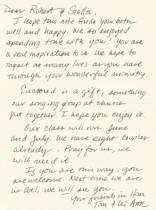 Dear Robert & Seela,
I hope this note finds you both
well and happy. We so enjoyed
spending time with you! You are
a real inspiration to us. We hope to
impact as many lives as you have
through your wonderful ministry.
Enclosed is a gift, something
our singing group at church
put together. I hope you enjoy it.
Our class will run June
and July. We have eight
already. Pray for us, we
will need it.
If you are our way, you
are welcome. Next time we are
in we will see you
Your friends in Him
Tim & Lee Ann